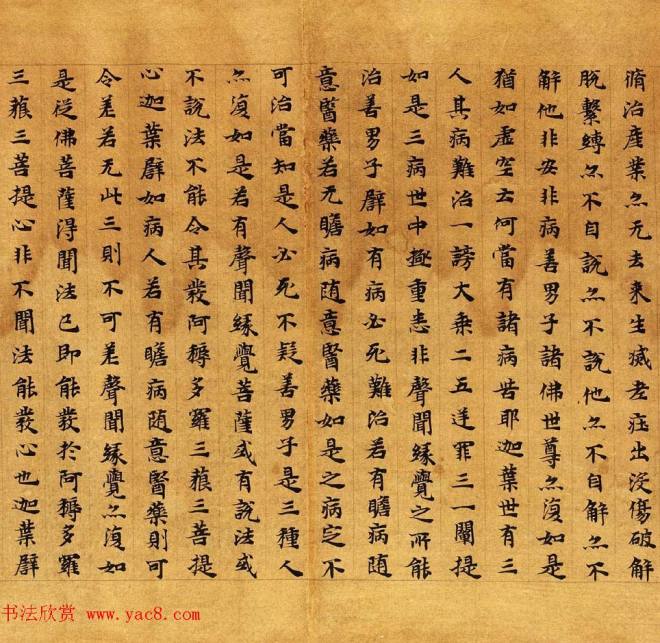 脩治產業亦无去来生滅老在出没傷破解
脱繫縛亦不自說亦不說他亦不自解亦不
解他非安非病善男子諸佛世尊亦復如是
猶如虛空云何當有諸病苦耶迦葉世有三
人其病難治一謗大乘二五逆罪三一闡提
如是三病世中極重悉非聲聞緣覺之所能
治善男子譬如有病必死難治若有瞻病随
意醫藥若无瞻病随意醫藥如是之病定不
可治當知是人必死不疑善男子是三種人
亦復如是若有聲聞緣覺菩薩或有說法或
不說法不能令其發阿耨多羅三藐三菩提
心迦葉譬如病人若有瞻病随意醫藥則可
令差若无此三則不可差聲聞緣覺亦復如
是從佛菩薩得聞法已即能發於阿耨多羅
三藐三菩提心非不聞法能發心也迦葉譬
书法欣赏 www.yac8.com